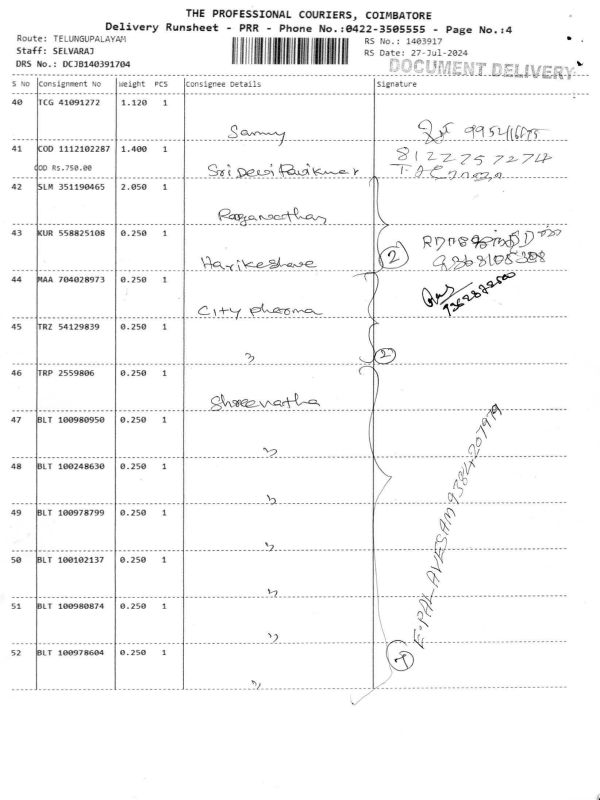 THE PROFESSIONAL COURIERS, COIMBATORE
Delivery Runsheet - PRR - Phone No.:0422-3505555 - Page No.:4
Route: TELUNGUPALAYAM
RS No.: 1403917
Staff: SELVARAJ
RS Date: 27-Jul-2024
DRS No.: DCJB140391704
DOCUMENT DELIVERY
S No Consignment No Weight PCS Consignee Details Signature
40 TCG 41091272 1.120 1
Samy
41 COD 1112102287 1.400 1
8122757274
COD Rs.750.00
Sri Devi
42 SLM 351190465 2.050 1
43 KUR 558825108 0.250 1
2
44 MAA 704028973 0.250 1
City pharma
45 TRZ 54129839 0.250 1
"
2
46 TRP 2559806 0.250 1
Shreenatha
47 BLT 100980950 0.250 1
"
48 BLT 100248630 0.250 1
"
49 BLT 100978799 0.250 1
"
50 BLT 100102137 0.250 1
"
51 BLT 100980874 0.250 1
"
52 BLT 100978604 0.250 1
"
7
E.PALAVESAM 9384207979